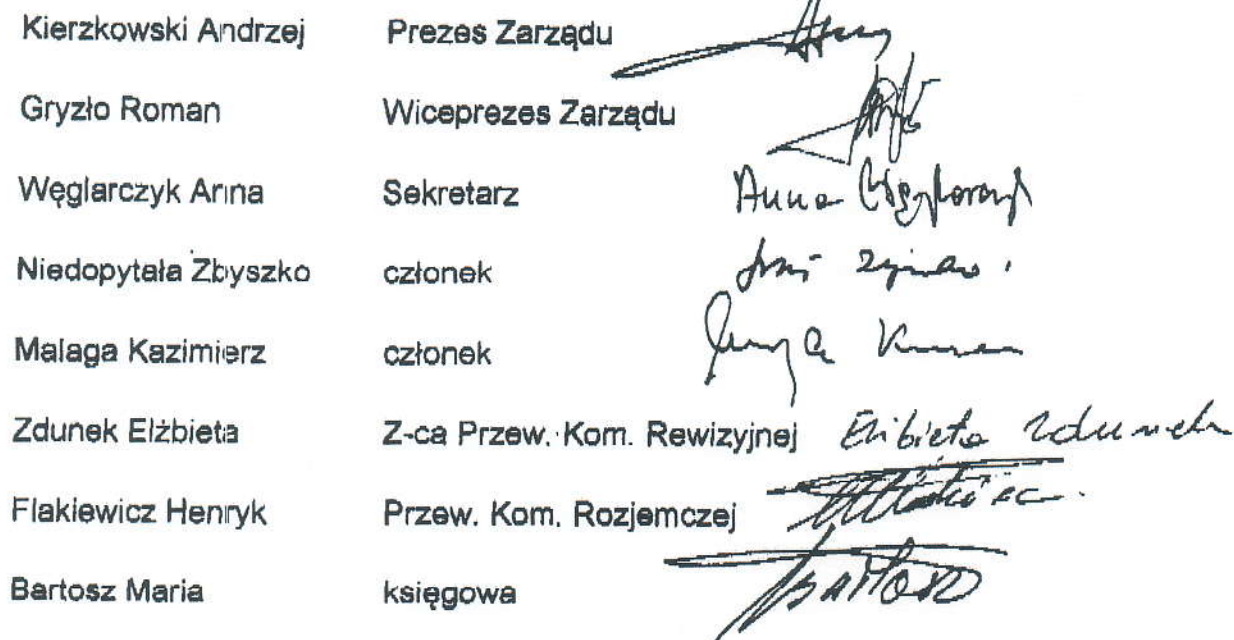 Kierzkowski Andrzej Prezes Zarządu
Gryzło Roman Wiceprezes Zarządu
Węglarczyk Anna Sekretarz Anna
Niedopytała Zbyszko członek
Malaga Kazimierz członek
Zdunek Elżbieta Z-ca Przew. Kom. Rewizyjnej Elżbieta Zdunek
Flakiewicz Henryk Przew. Kom. Rozjemczej
Bartosz Maria księgowa Bartosz